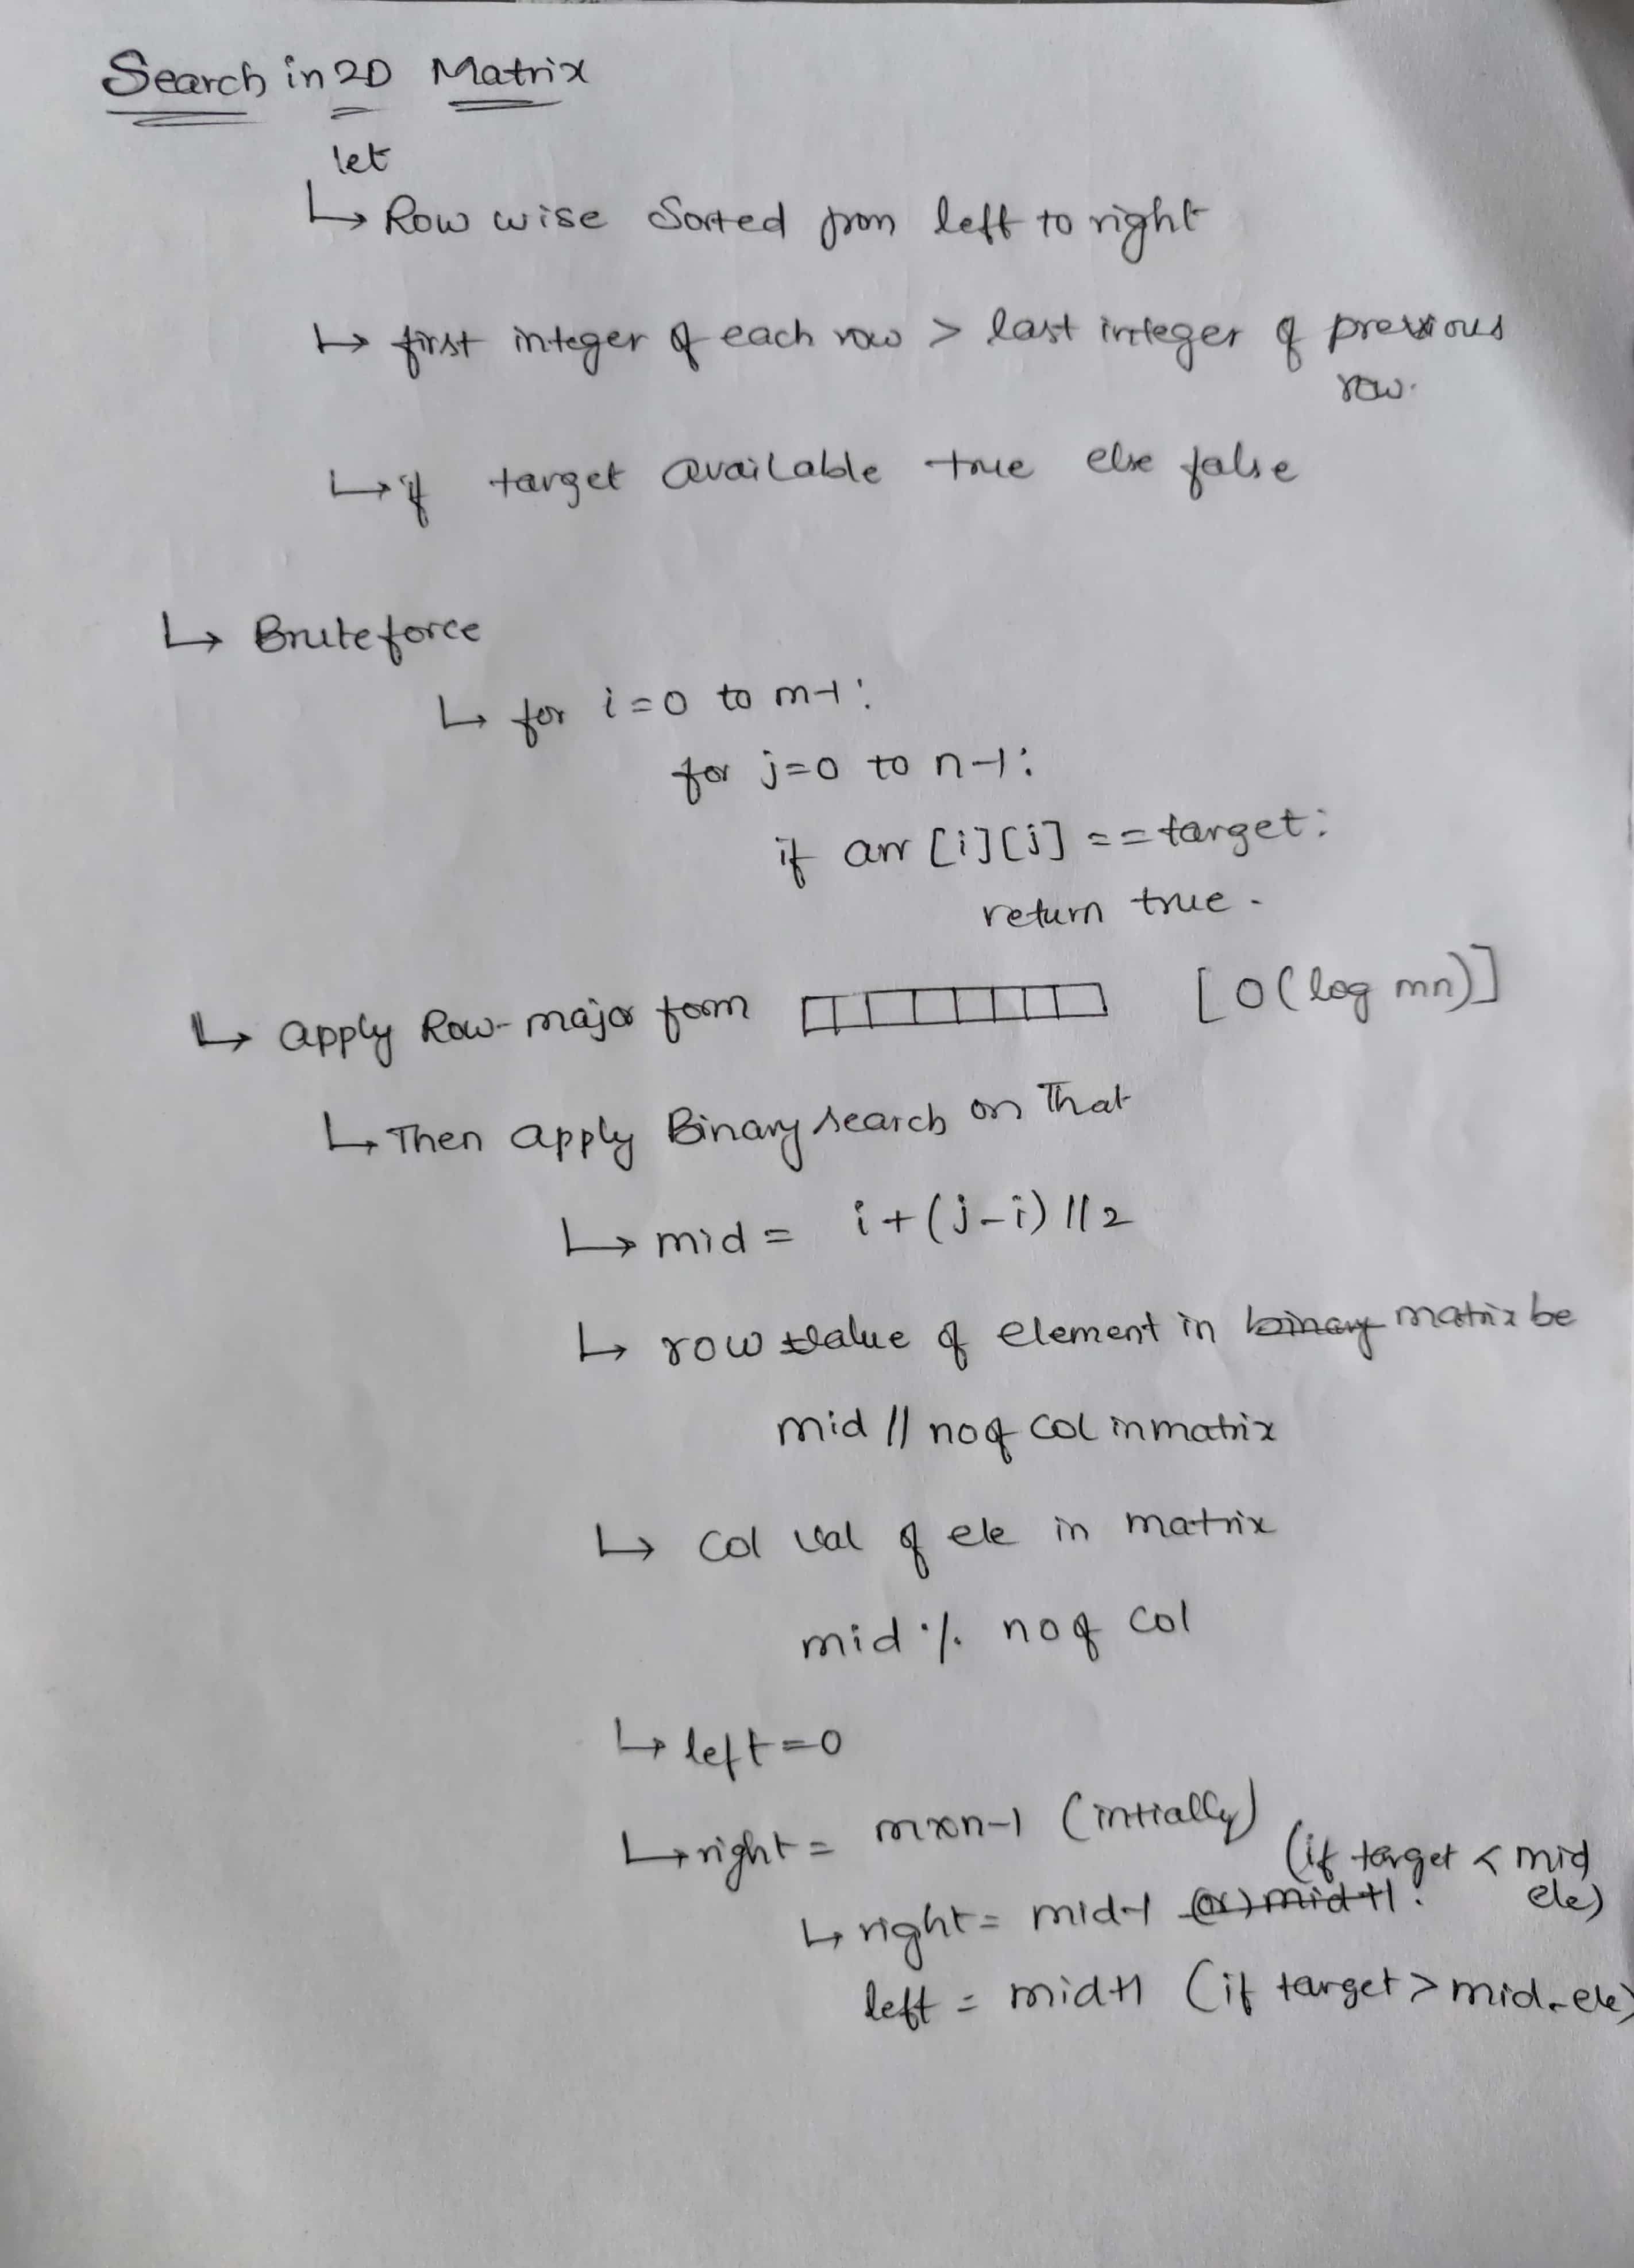 Search in 2D Matrix
let
↳ Row wise Sorted from left to right
↳ first integer of each row > last integer of previous
row.
↳ if target available true else false
↳ Bruteforce
↳ for i=0 to m-1:
for j=0 to n-1:
if arr [i][j] == target:
return true.
↳ apply Row-major form [O(log mn)]
↳ Then apply Binary search on That
↳ mid = i+(j-i)//2
↳ row value of element in binary matrix be
mid // no of col in matrix
↳ col val of ele in matrix
mid % no of col
↳ left=0
↳ right = mxn-1 (intially)
(if target < mid
↳ right= mid-1 (or) mid+1. ele)
left = mid+1 (if target > mid-ele)